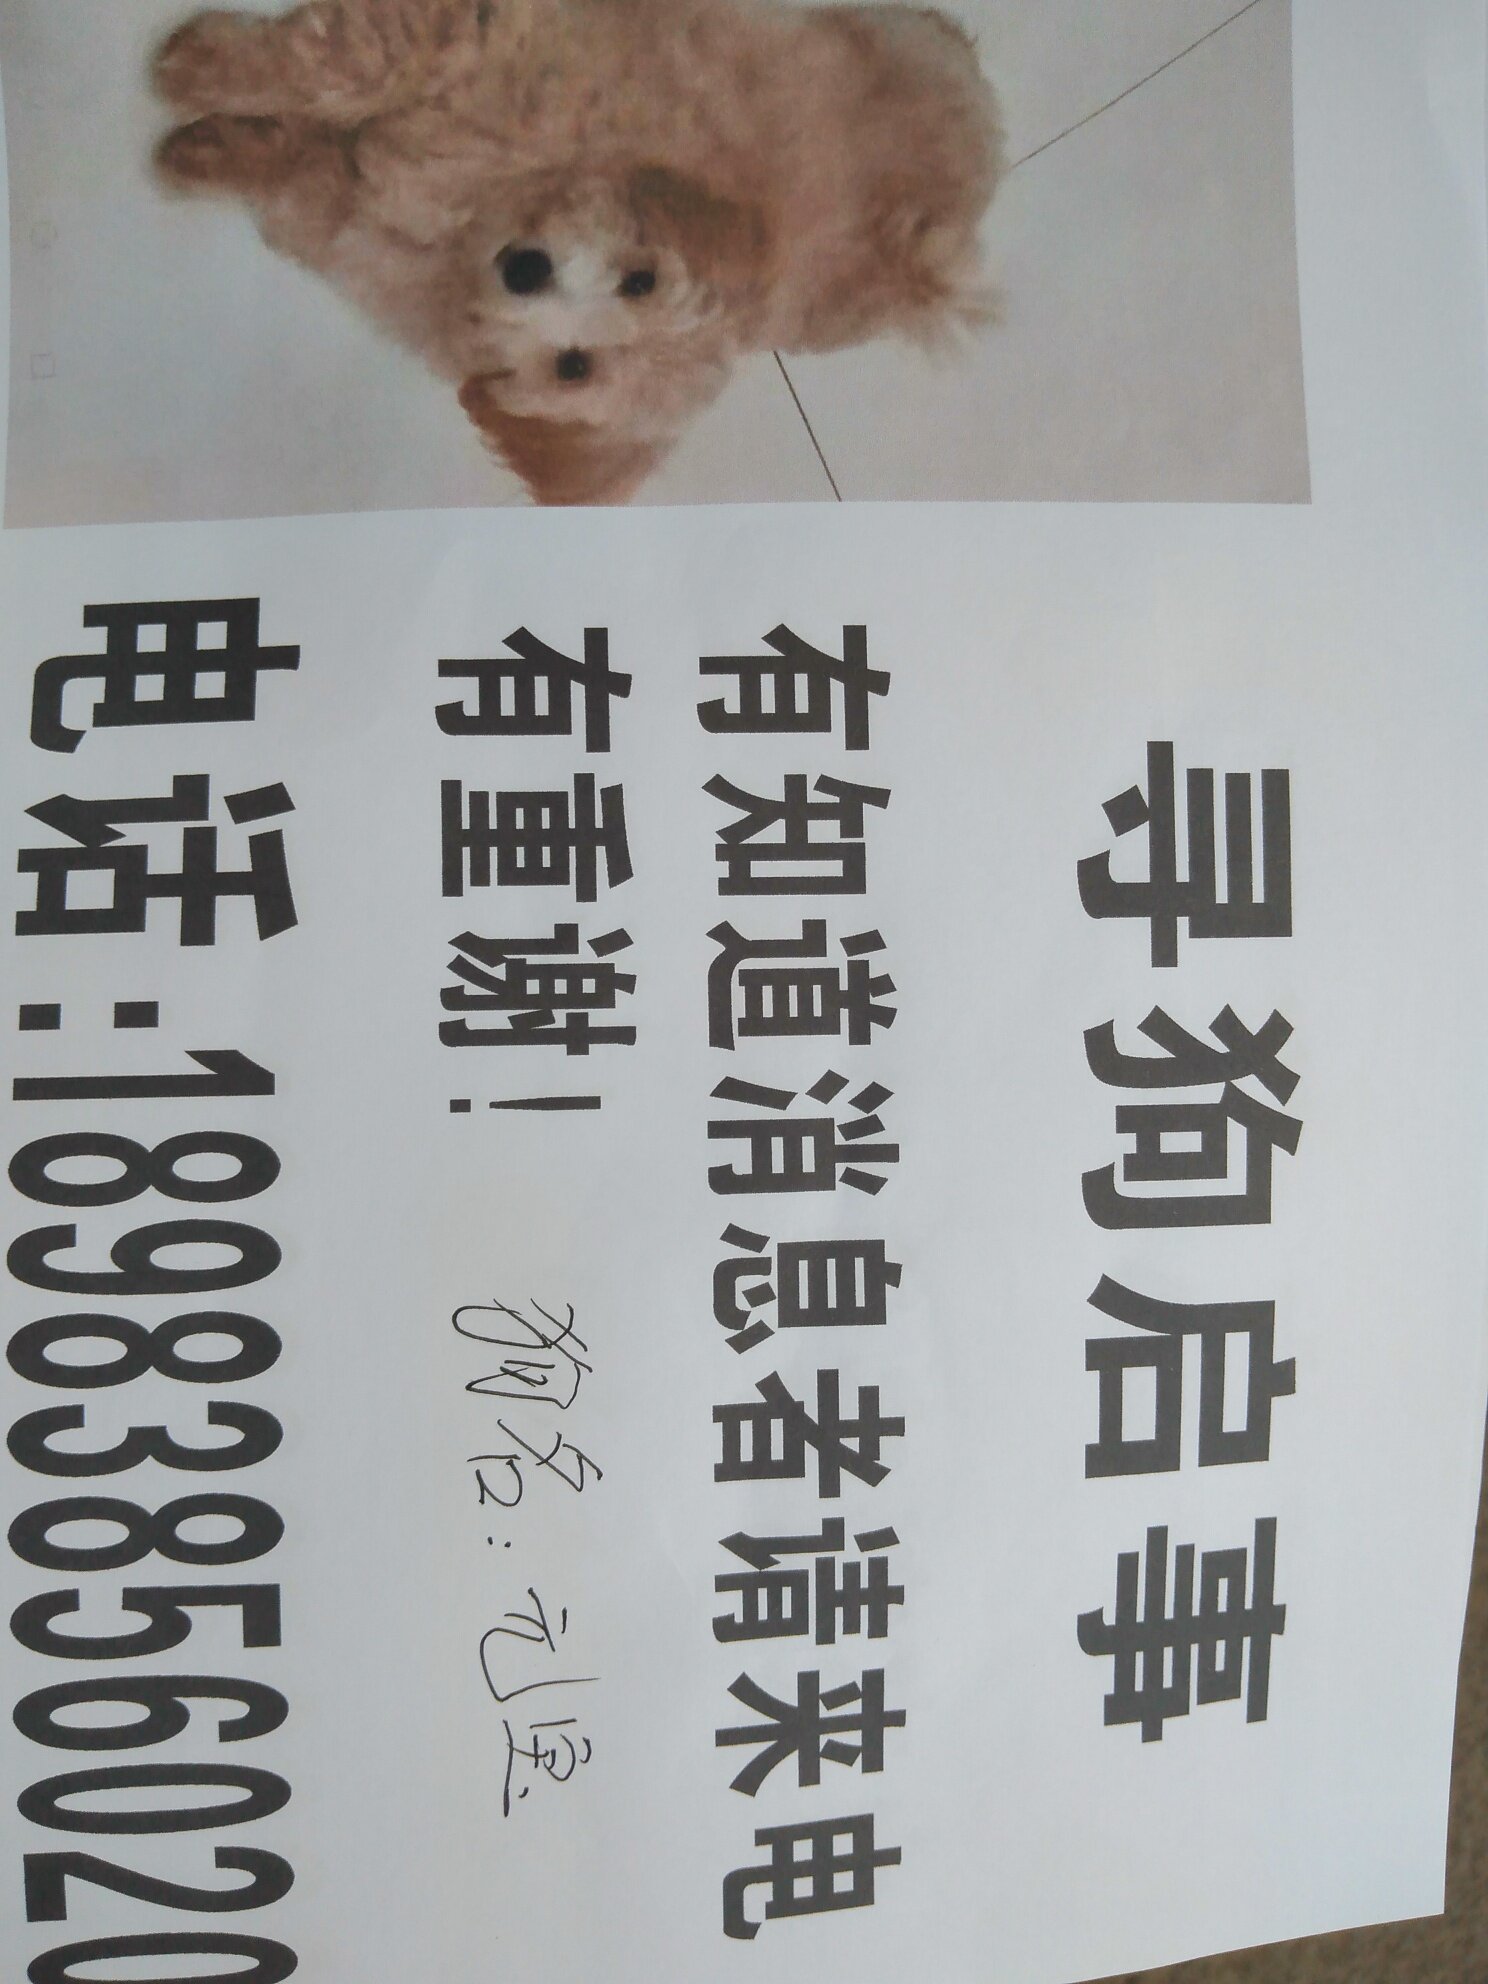 寻狗启事
有知道消息者请来电
有重谢! 狗名:元宝
电话:18983856020